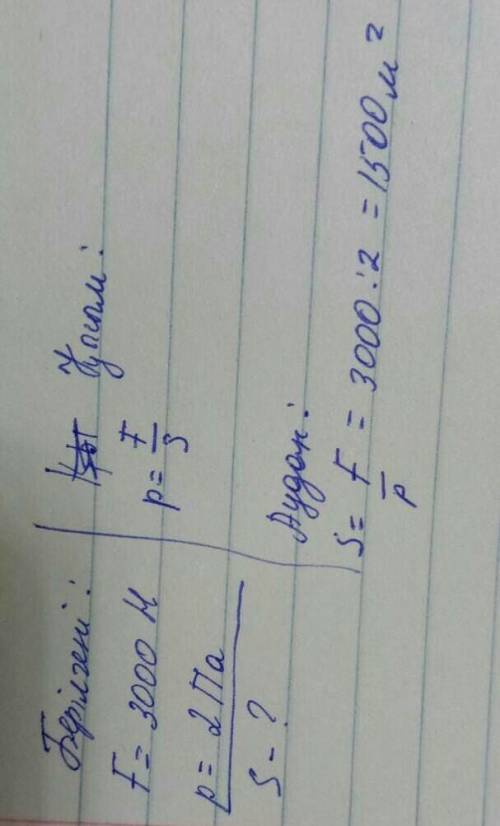 Берілгені:
F = 3000 Н
p = 2 Па
S - ?
p = F/S
Аудан:
S = F/p = 3000 : 2 = 1500 м²